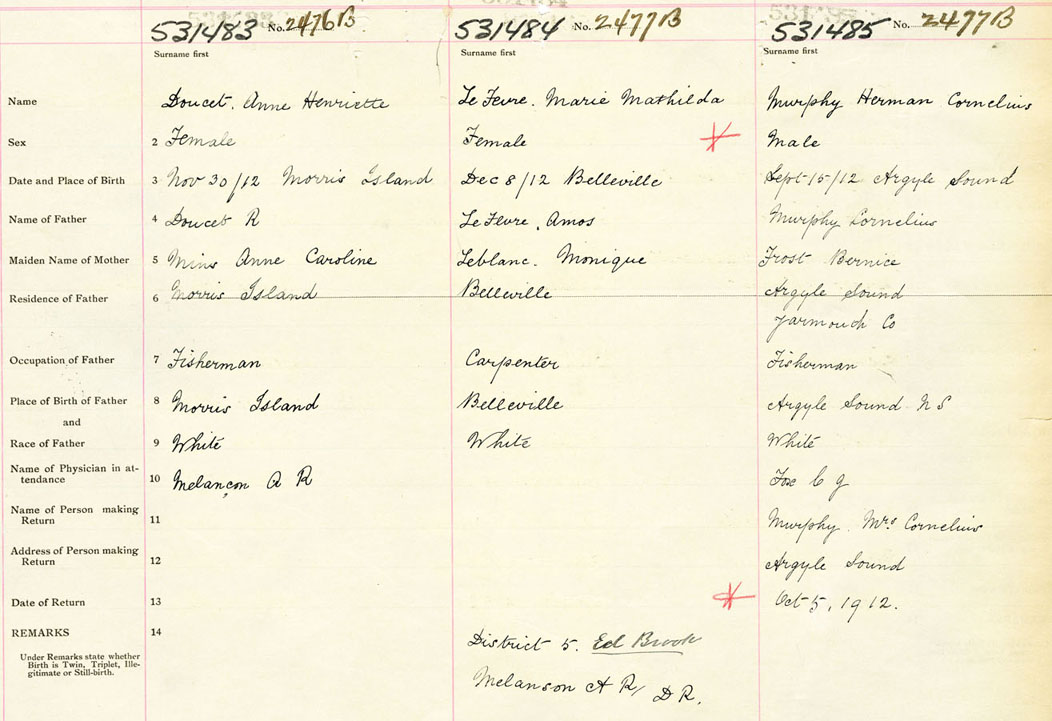 531483 No. 2476B 531484 No. 2477B 531485 No. 2477B
Surname first Surname first Surname first
Name Doucet. Anne Henriette Le Fevre. Marie Mathilda Murphy Herman Cornelius
Sex 2 Female Female Male
Date and Place of Birth 3 Nov 30/12 Morris Island Dec 8/12 Belleville Sept 15/12 Argyle Sound
Name of Father 4 Doucet R Le Fevre, Amos Murphy Cornelius
Maiden Name of Mother 5 Anne Caroline Leblanc. Monique Frost Bernice
Residence of Father 6 Morris Island Belleville Argyle Sound
Yarmouth Co
Occupation of Father 7 Fisherman Carpenter Fisherman
Place of Birth of Father 8 Morris Island Belleville Argyle Sound N S
and
Race of Father 9 White White White
Name of Physician in at-
tendance 10 Melançon A R Fox C G
Name of Person making
Return 11 Murphy. Mrs Cornelius
Address of Person making
Return 12 Argyle Sound
Date of Return 13 Oct 5, 1912.
REMARKS 14
District 5. Ed Brook
Under Remarks state whether
Birth is Twin, Triplet, Ille-
gitimate or Still-birth.
Melanson A R/ D R.